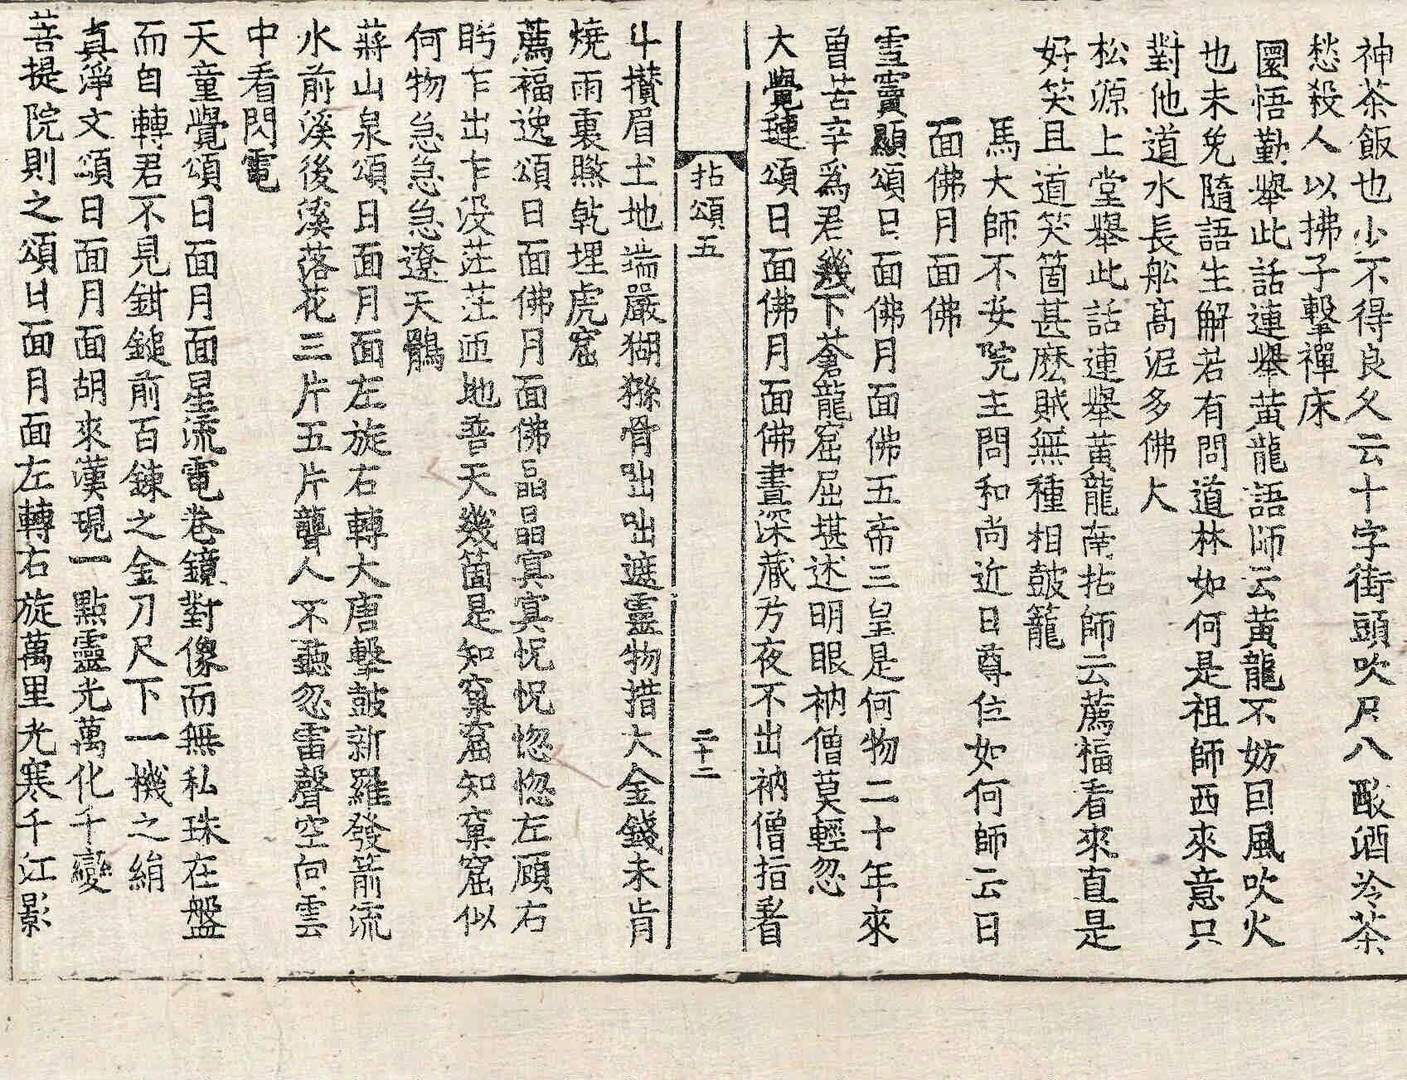 神茶飯也少不得良久云十字街頭吹尺八酸酒冷茶
愁殺人以拂子擊禪床
圜悟勤舉此話連舉黃龍語師云黃龍不妨因風吹火
也未免隨語生解若有問道林如何是祖師西來意只
對他道水長船高泥多佛大
松源上堂舉此話連舉黃龍南拈師云薦福看來直是
好笑且道笑箇甚麽賊無種相鼓籠
馬大師不安院主問和尚近日尊位如何師云日
面佛月面佛
雪竇顯頌日面佛月面佛五帝三皇是何物二十年來
曾苦辛爲君幾下蒼龍窟屈堪述明眼衲僧莫輕忽
大覺璉頌日面佛月面佛晝深藏方夜不出衲僧指看
拈頌五
二十二
斗攅眉土地端嚴猢猻骨咄咄遮靈物措大金錢未肯
燒雨裏㷮乾埋虎窟
薦福逸頌日面佛月面佛晶晶寞寞怳怳惚惚左顧右
眄乍出乍没茫茫匝地普天幾箇是知窠窟知窠窟似
何物急急急遼天鶻
蔣山泉頌日面月面左旋右轉大唐擊鼓新羅發箭流
水前溪後溪落花三片五片聾人不聽忽雷聲空向雲
中看閃電
天童覺頌日面月面星流電卷鏡對像而無私珠在盤
而自轉君不見鉗鎚前百鍊之金刀尺下一機之絹
真淨文頌日面月面胡來漢現一點靈光萬化千變
菩提院則之頌日面月面左轉右旋萬里光寒千江影